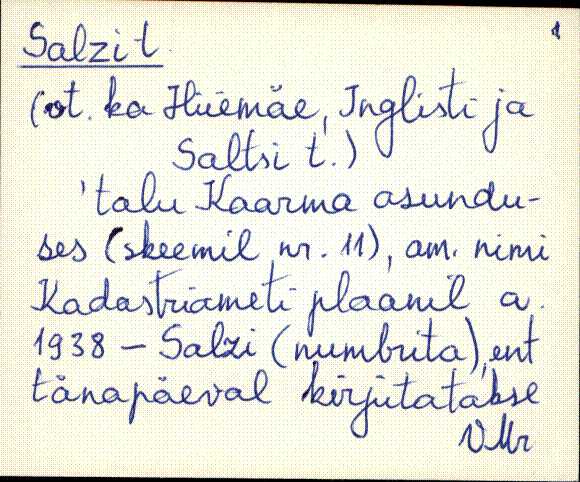 Salzi t. 1
(vt. ka Hiiemäe, Inglisti ja
Saltsi t.)
'talu Kaarma asundu-
ses (skeemil nr. 11), am. nimi
Kadastriameti plaanil a.
1938 – Salzi (numbrita), ent
tänapäeval kirjutatakse
VMr